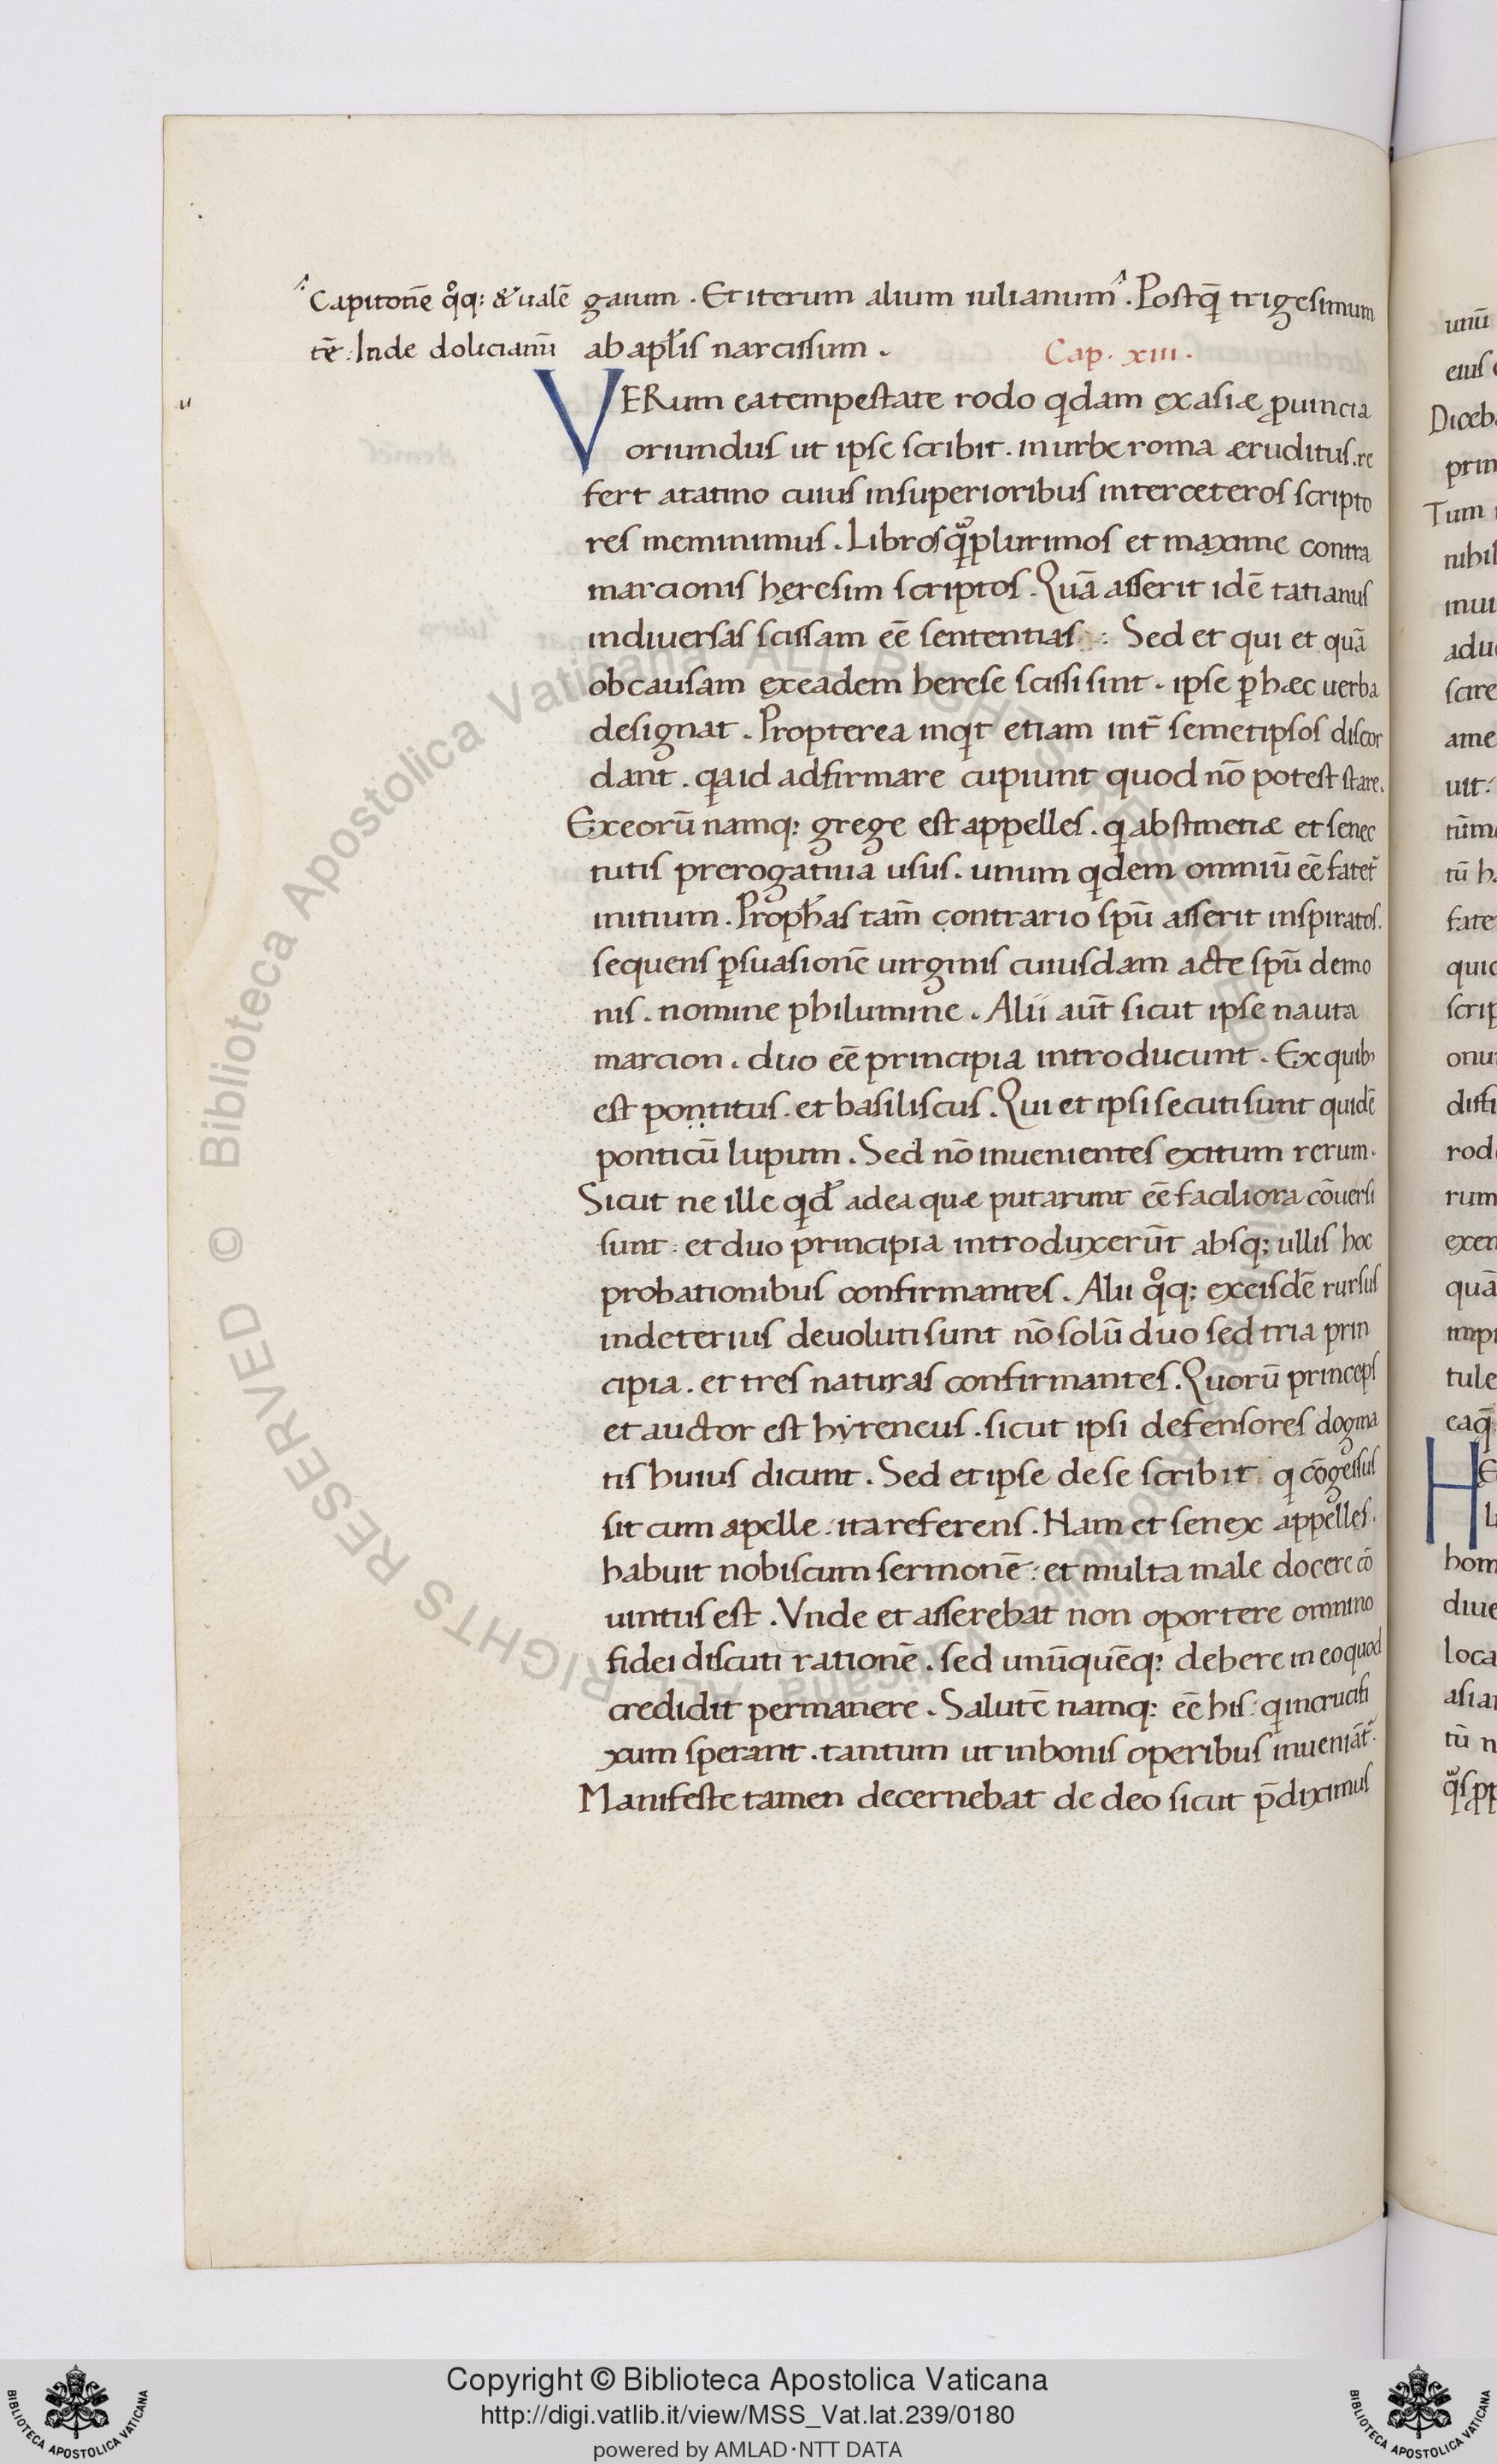 Capitonē qͦq: & ualē
tē. Inde dolicianū
gaium . Et iterum alium iulianum . Postq̄ trigesimum
ab apl̄is narcissum .
Cap. xiii.
VERum ea tempestate rodo qdam ex asiæ ꝓuincia
oriundus ut ipse scribit . in urbe roma æruditus . re
fert atatino cuius insuperioribus inter ceteros scripto
res meminimus . Libros qᷓplurimos et maxime contra
marcionis hęresim scriptos . Quā asserit idē tatianus
in diuersas scissam eē sententias . Sed et qui et quā
ob causam ex eadem herese scissi sint . ipse ꝑ hæc uerba
designat . Propterea inqt etiam int̄ semetipsos discor
dant . qa id adfirmare cupiunt quod nō potest stare .
Ex eorū namq: grege est appelles . q abstinētiæ et senec
tutis prerogatiua usus . unum qdem omniū eē fatet᷑
initium . Proph̄as tam̄ contrario spū asserit inspiratos .
sequens ꝑsuasionē uirginis cuiusdam acte spū demo
nis . nomine philumine . Alii aut̄ sicut ipse nauta
marcion . duo eē principia introducunt . Ex quibꝰ
est pontitus . et basiliscus . Qui et ipsi secuti sunt quidē
ponticū lupum . Sed nō inuenientes exitum rerum .
Sicut ne ille qd̄ ad ea quæ putarunt eē faciliora cōuersi
sunt : et duo principia introduxerūt absq; ullis hoc
probationibus confirmantes . Alii qͦq: ex eisdē rursus
in deterius deuoluti sunt nō solū duo sed tria prin
cipia . et tres naturas confirmantes . Quorū princeps
et auctor est hyreneus . sicut ipsi defensores dogma
tis huius dicunt . Sed et ipse de se scribit q cōgessus
sit cum apelle : ita referens . Nam et senex appelles .
habuit nobiscum sermonē : et multa male docere cō
uintus est . Vnde et asserebat non oportere omnino
fidei discuti rationē . sed unūquēq: debere in eo quod
credidit permanere . Salutē namq: eē his : q in crucifi
xum sperant . tantum ut in bonis operibus inueniāt᷑ .
Manifeste tamen decernebat de deo sicut p̄diximus
unū
eius
Diceb
prin
Tum
nihil
adu
scire
ame
uit :
fate
scrip
rod
rum
quā
tule
eaq̄
H
hom
diue
loca
asia
Copyright © Biblioteca Apostolica Vaticana
http://digi.vatlib.it/view/MSS_Vat.lat.239/0180
powered by AMLAD·NTT DATA
BIBLIOTECA APOSTOLICA VATICANA
BIBLIOTECA APOSTOLICA VATICANA
© Biblioteca Apostolica Vaticana ALL RIGHTS RESERVED